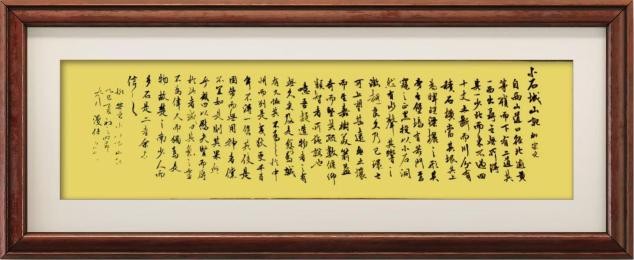 小石城山記 柳宗元
自西山道口徑北逾黃
茅嶺而下有二道其
一西出尋之無所得
其一少北而東不過四
十丈土斷而川分有
積石橫當其垠其上
為睥睨梁欐之形其
旁出堡塢有若門焉
窺之正黑投以小石洞
然有水聲其響之
激越良久乃已環之
可上望甚遠無土壤
而生嘉樹美箭益
奇而堅其疏數偃仰
類智者所施設也
噫吾疑造物者之有
無久矣及是愈以為誠
有又怪其不為之於中
州而列是夷狄更千百
年不得一售其伎是
固勞而無用神者儻
不宜如是則其果無
乎或曰以慰夫賢而辱
於此者或曰其氣之靈
不為偉人而獨為是
物故楚之南少人而
多石是二者余未
信之